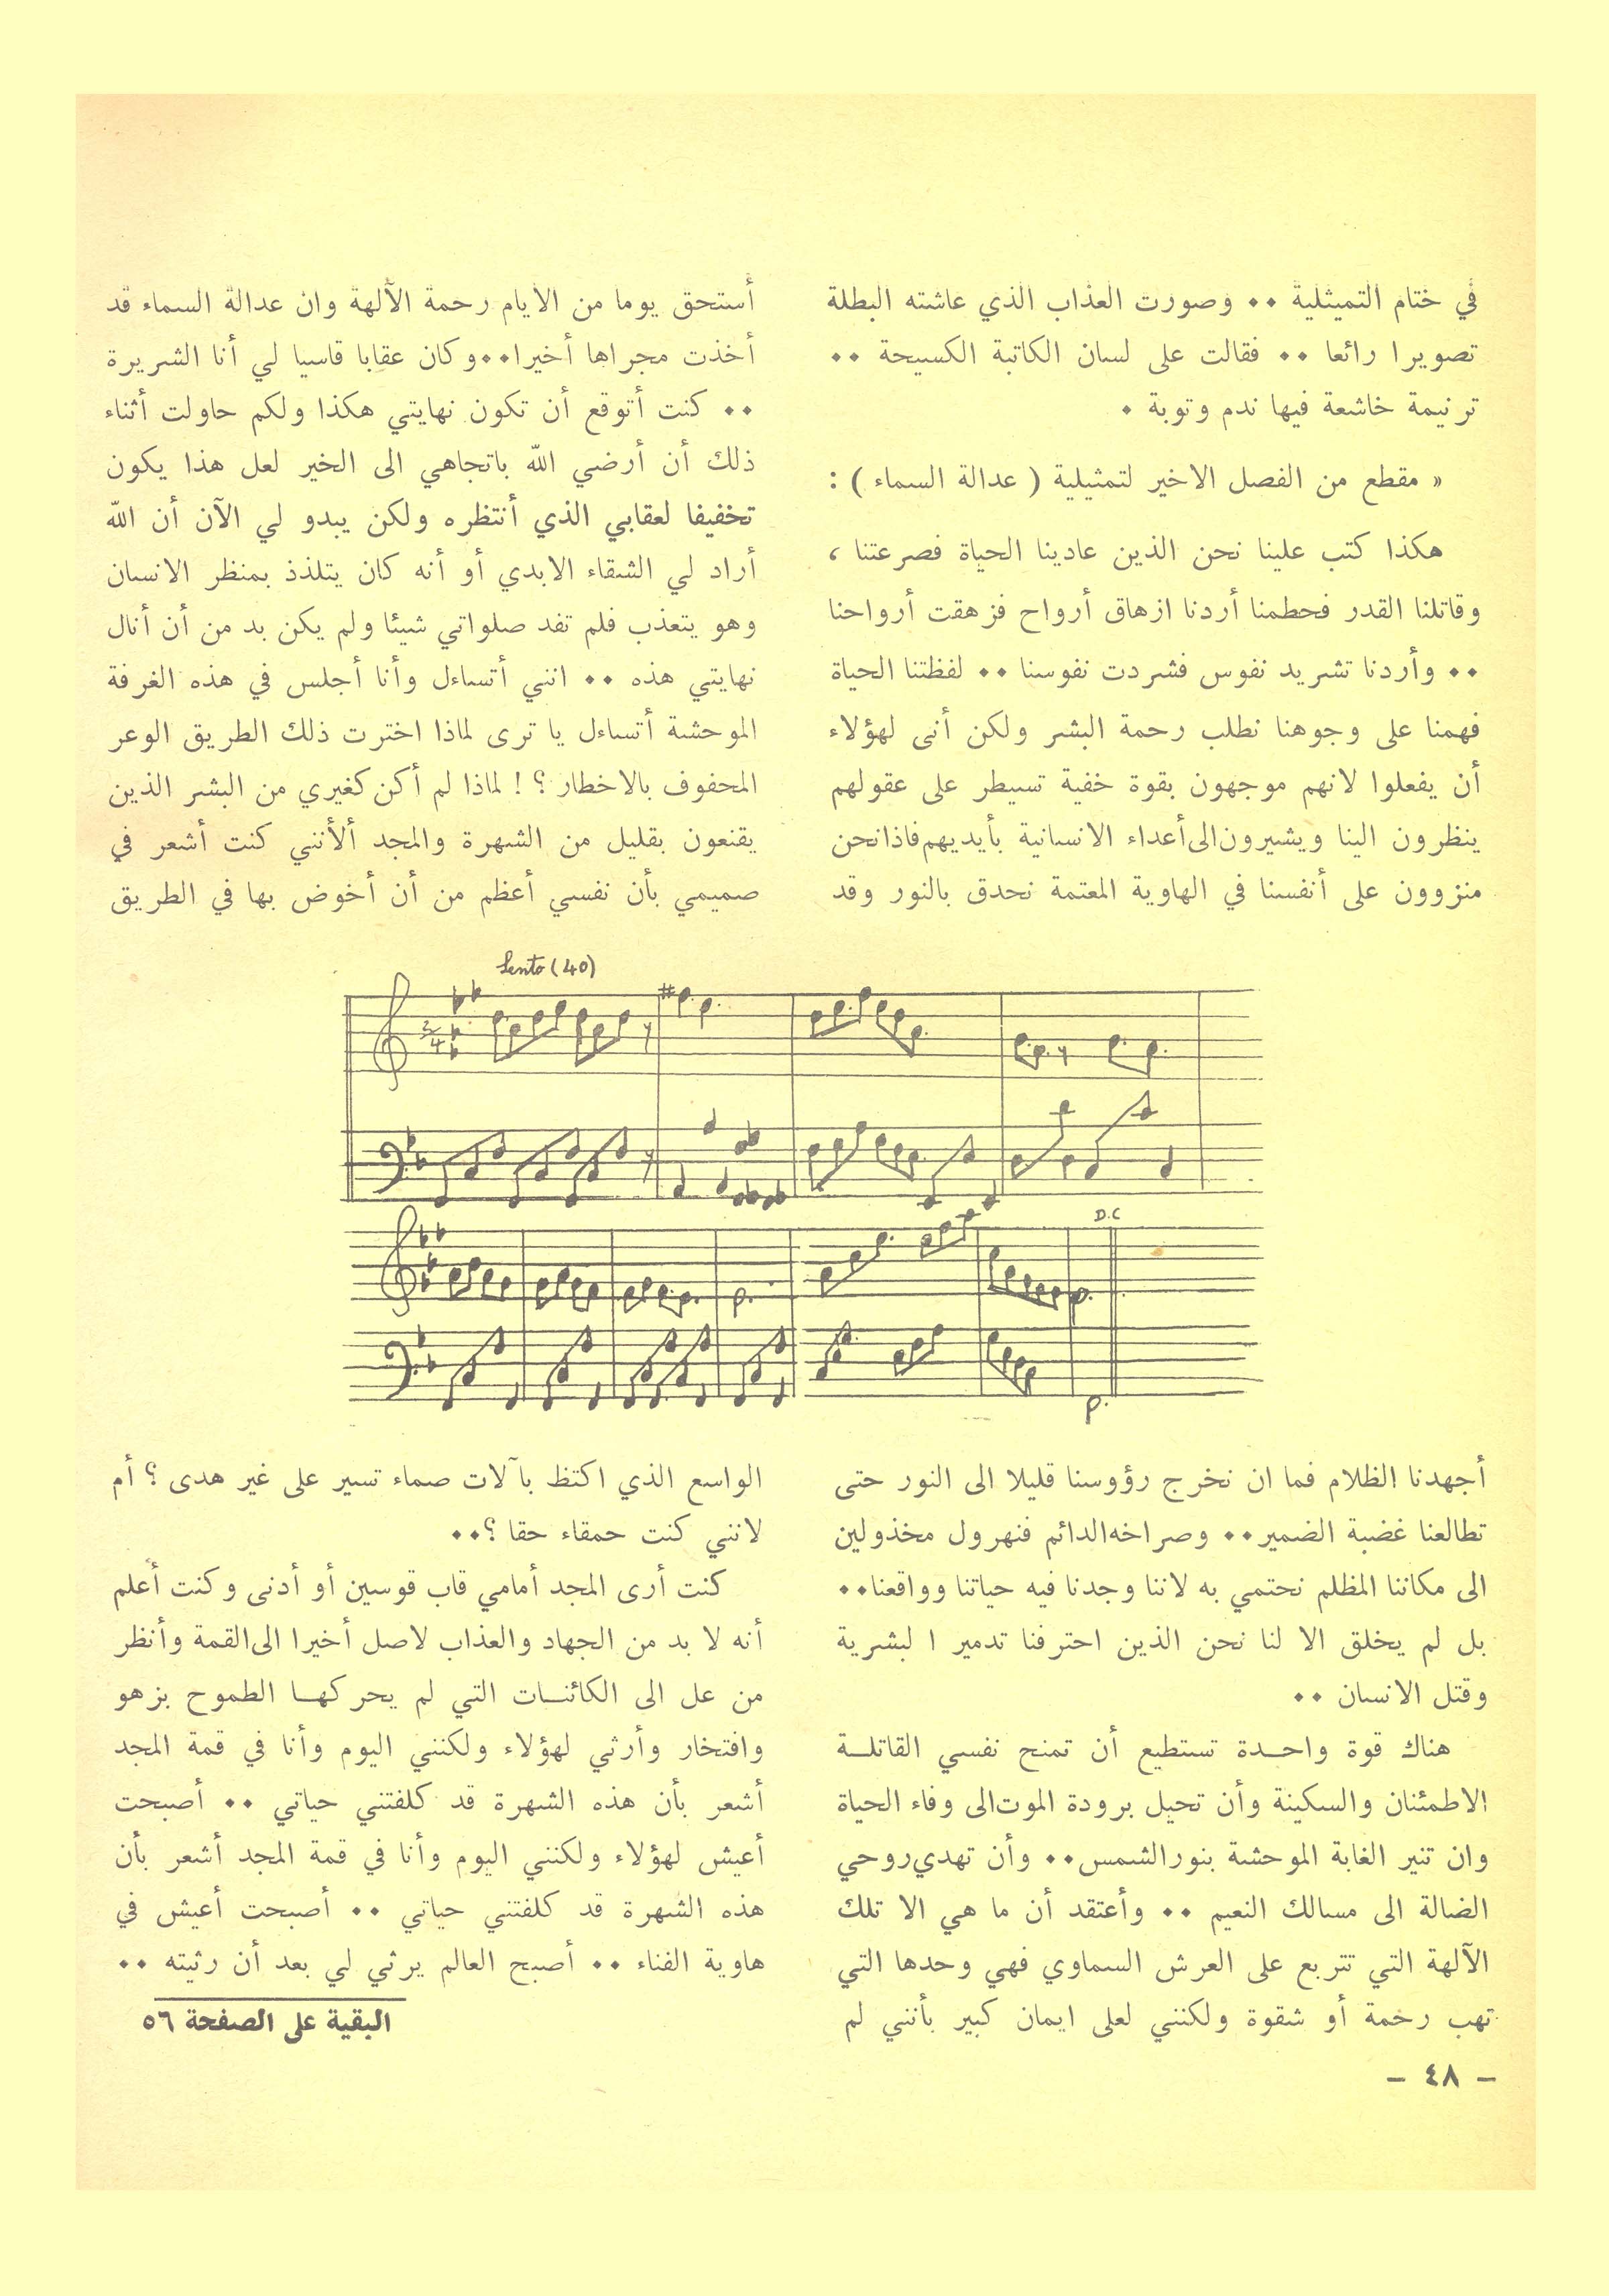 في ختام التميثلية ٠٠ وصورت العذاب الذي عاشته البطلة
تصويرا رائعا ٠٠ فقالت على لسان الكاتبة الكسيحة ٠٠
ترنيمة خاشعة فيها ندم وتوبة ٠
« مقطع من الفصل الاخير لتمثيلية ( عدالة السماء ) :
هكذا كتب علينا نحن الذين عادينا الحياة فصرعتنا ،
وقاتلنا القدر فحطمنا أردنا ازهاق أرواح فزهقت أرواحنا
٠٠ وأردنا تشريد نفوس فشردت نفوسنا ٠٠ لفظتنا الحياة
فهمنا على وجوهنا نطلب رحمة البشر ولكن أنى لهؤلاء
أن يفعلوا لانهم موجهون بقوة خفية تسيطر على عقولهم
ينظرون الينا ويشيرون الى أعداء الانسانية بأيديهم فاذا نحن
منزوون على أنفسنا في الهاوية المعتمة نحدق بالنور وقد
أجهدنا الظلام فما ان نخرج رؤوسنا قليلا الى النور حتى
تطالعنا غضبة الضمير٠٠ وصراخه الدائم فنهرول مخذولين
الى مكاننا المظلم نحتمي به لاننا وجدنا فيه حياتنا وواقعنا٠٠
بل لم يخلق الا لنا نحن الذين احترفنا تدمير ا لبشرية
وقتل الانسان ٠٠
هناك قوة واحـدة تستطيع أن تمنح نفسي القاتلـة
الاطمئنان والسكينة وأن تحيل برودة الموت الى وفاء الحياة
وان تنير الغابة الموحشة بنور الشمس٠٠ وأن تهدي روحي
الضالة الى مسالك النعيم ٠٠ وأعتقد أن ما هي الا تلك
الآلهة التي تتربع على العرش السماوي فهي وحدها التي
تهب رحمة أو شقوة ولكنني لعلى ايمان كبير بأنني لم
أستحق يوما من الايام رحمة الآلهة وان عدالة السماء قد
أخذت مجراها أخيرا٠٠وكان عقابا قاسيا لي أنا الشريرة
٠٠ كنت أتوقع أن تكون نهايتي هكذا ولكم حاولت أثناء
ذلك أن أرضي الله باتجاهي الى الخير لعل هذا يكون
تخفيفا لعقابي الذي أنتظره ولكن يبدو لي الآن أن الله
أراد لي الشقاء الابدي أو أنه كان يتلذذ بمنظر الانسان
وهو يتعذب فلم تفد صلواتي شيئا ولم يكن بد من أن أنال
نهايتي هذه ٠٠ انني أتساءل وأنا أجلس في هذه الغرفة
الموحشة أتساءل يا ترى لماذا اخترت ذلك الطريق الوعر
المحفوف بالاخطار ؟ ! لماذا لم أكن كغيري من البشر الذين
يقنعون بقليل من الشهرة والمجد ألأنني كنت أشعر في
صميمي بأن نفسي أعظم من أن أخوض بها في الطريق
الواسع الذي اكتظ بآلات صماء تسير على غير هدى ؟ أم
لانني كنت حمقاء حقا ؟٠٠
كنت أرى المجد أمامي قاب قوسين أو أدنى وكنت أعلم
أنه لا بد من الجهاد والعذاب لاصل أخيرا الى القمة وأنظر
من عل الى الكائنـات التي لم يحركهـا الطموح بزهو
وافتخار وأرثي لهؤلاء ولكنني اليوم وأنا في قمة المجد
أشعر بأن هذه الشهرة قد كلفتني حياتي ٠٠ أصبحت
أعيش لهؤلاء ولكنني اليوم وأنا في قمة المجد أشعر بأن
هذه الشهرة قد كلفتني حياتي ٠٠ أصبحت أعيش في
هاوية الفناء ٠٠ أصبح العالم يرثي لي بعد أن رثيته ٠٠
البقية على الصفحة ٥٦
Lento (40)
D.C
- ٤٨ -